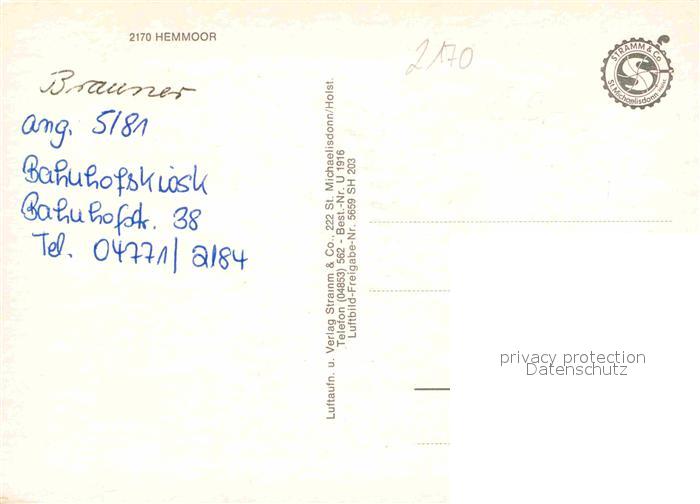 2170 HEMMOOR
2170
Brauner
ang. 5/81
Bahnhofskiosk
Bahnhofstr. 38
Tel. 04771/2184
Luftaufn. u. Verlag Stramm & Co., 222 St. Michaelisdonn/Holst.
Telefon (04853) 562 - Best.-Nr. U 1916
Luftbild-Freigabe-Nr. 5659 SH 203
STRAMM & Co
St. Michaelisdonn, Holst.
privacy protection
Datenschutz